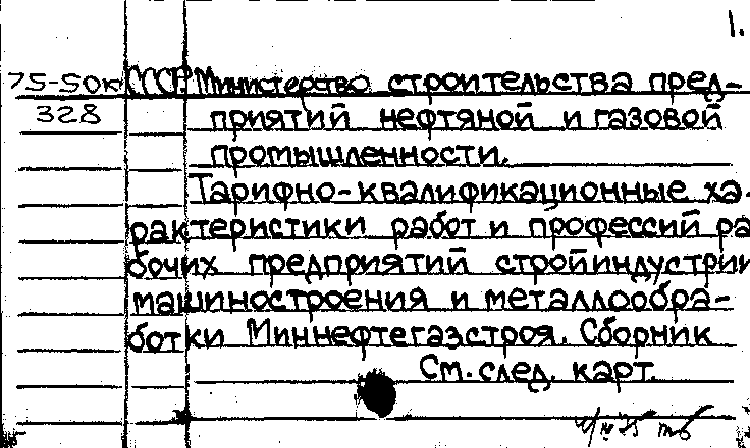 1.
75-50к СССР. Министерство строительства пред-
328 приятий нефтяной и газовой
промышленности.
Тарифно-квалификационные ха-
рактеристики работ и профессий ра
бочих предприятий стройиндустрии
машиностроения и металлообра-
ботки Миннефтегазстроя. Сборник
См. след. карт.